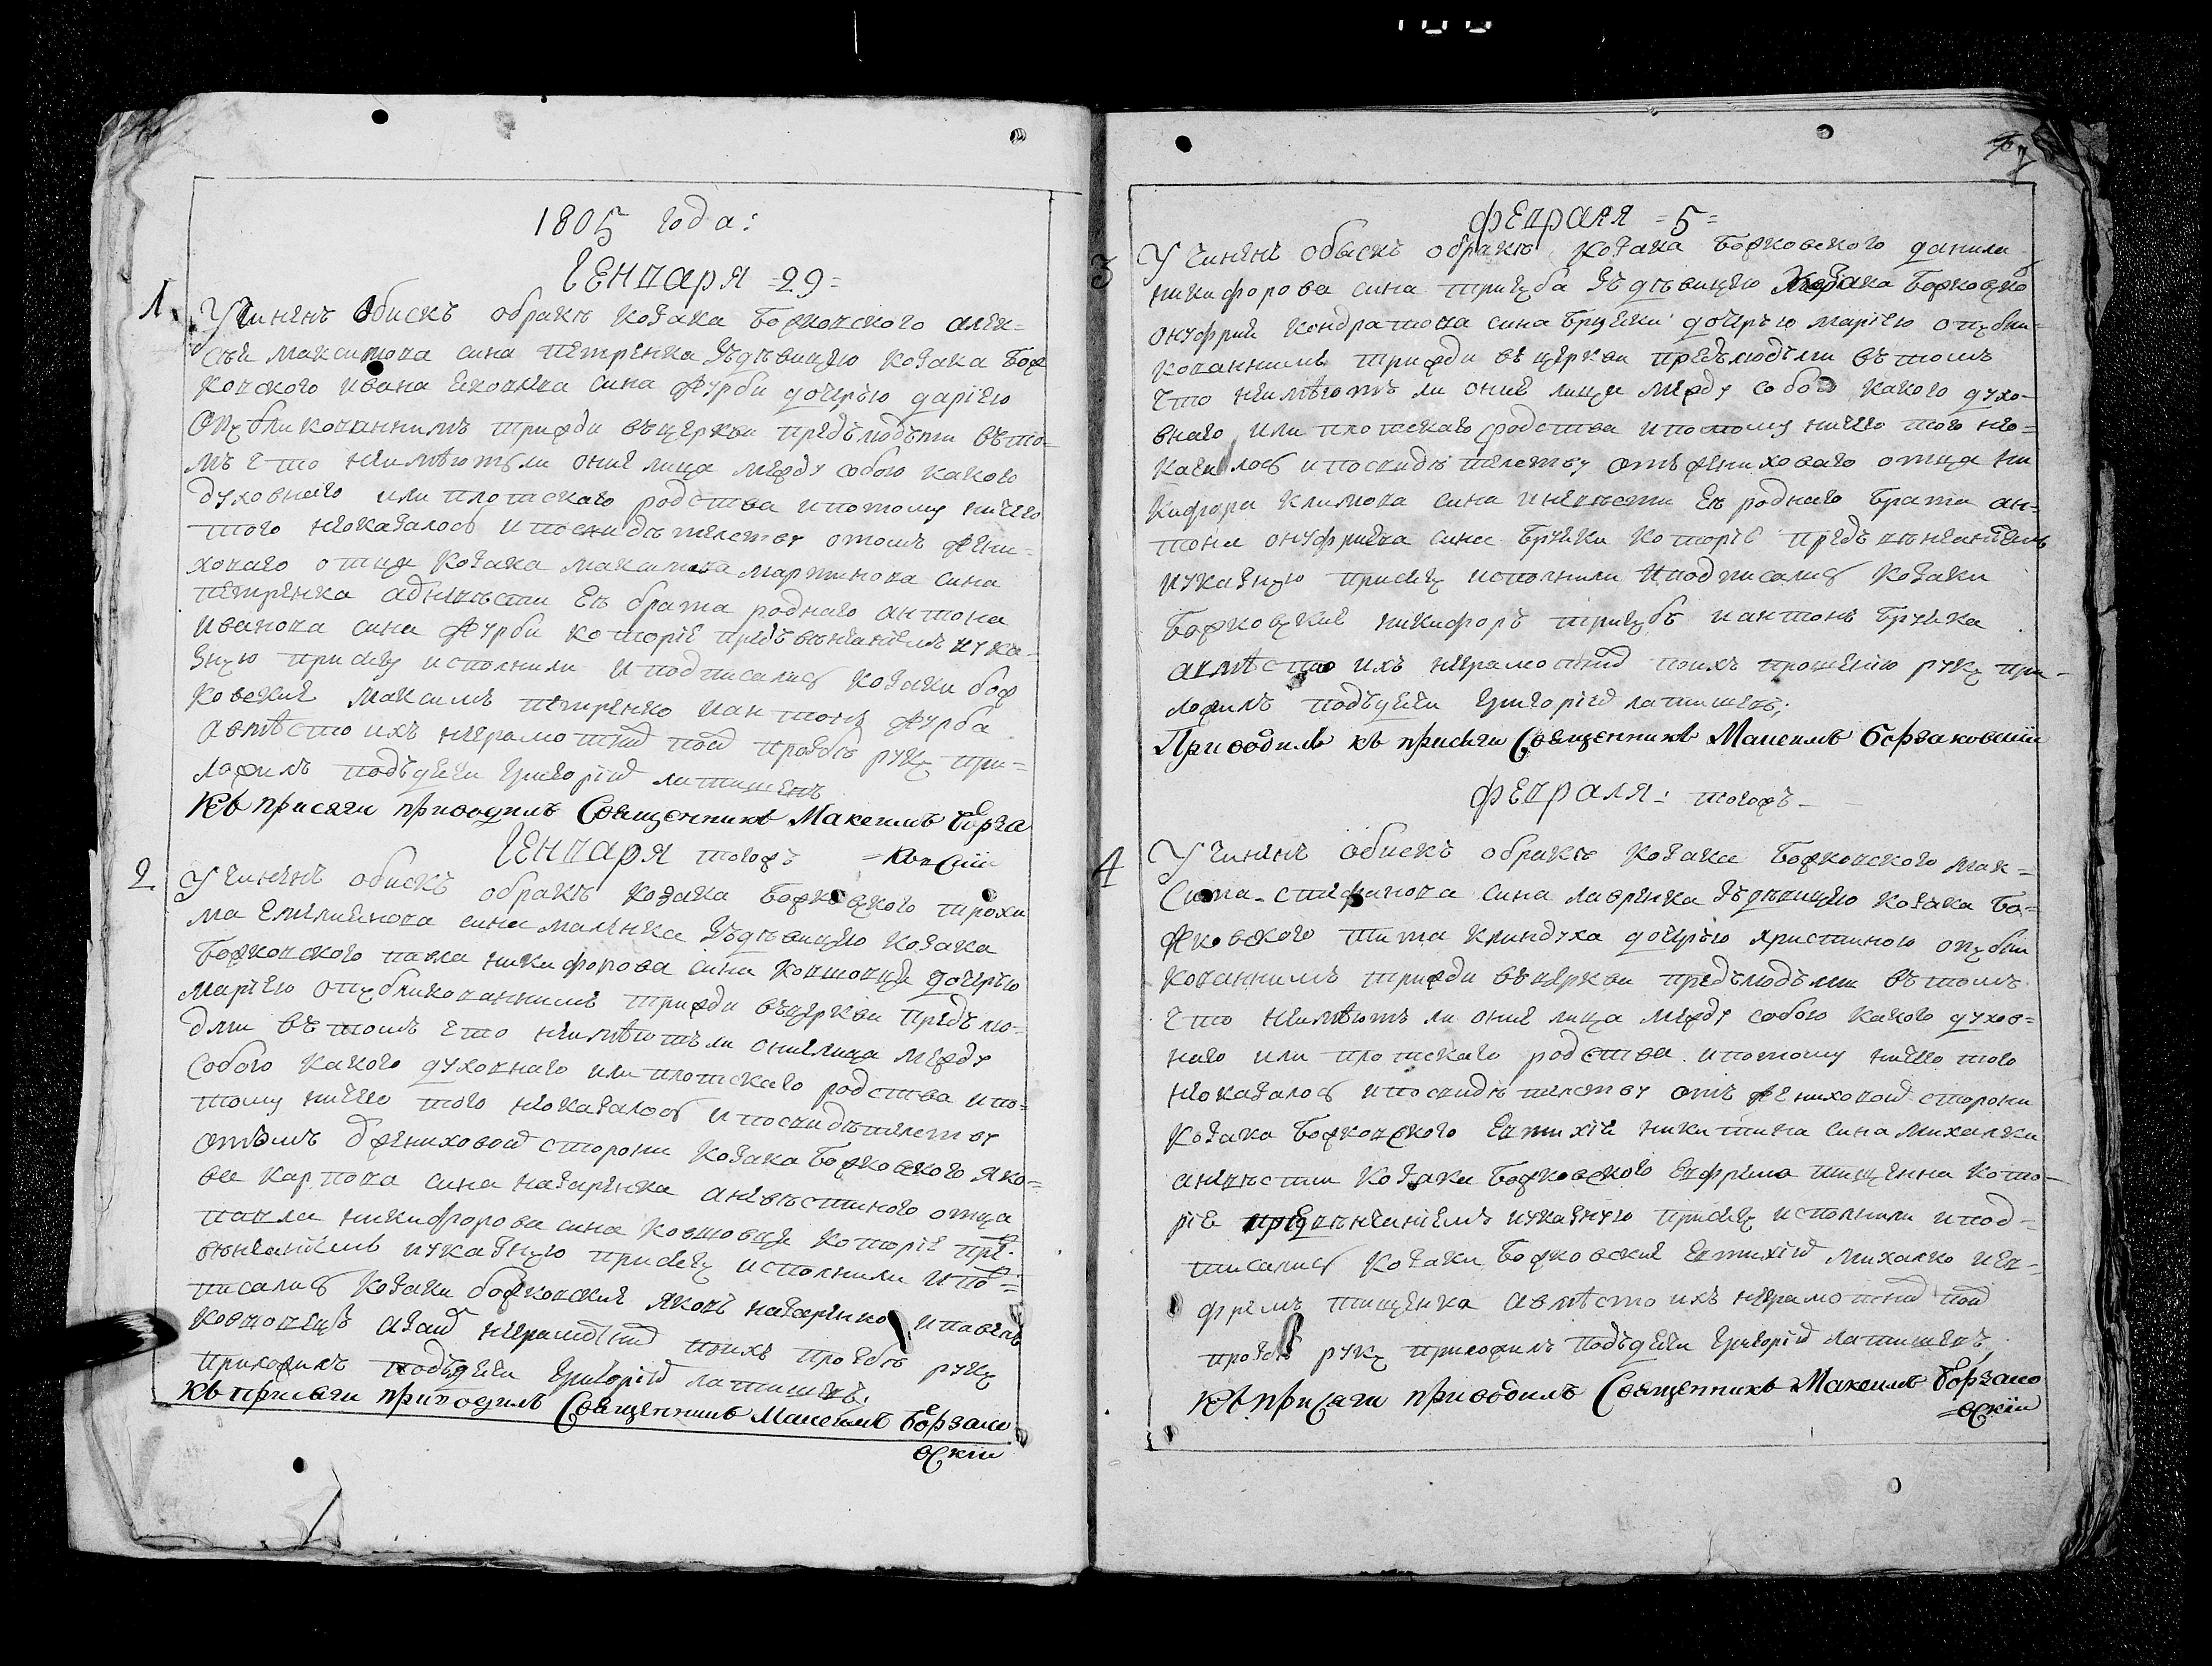 1805 года:
Генваря -29=
1. Учинень Обискъ обракѣ козака Божковского алек=
сѣи максимова сина петренка зъдѣвицею козака Бож
ковского ивана сина Журби дочерью дарією
Опубликованнимъ трижди въцеркви предълюдьми въто-
мъ что неимѣютъли оние лица между собою какого
духовнаго или плотскаго родства ипотому ничего
того неоказалось ипосвидѣтелству отомъ жени-
ховаго отца козака максимова мартинова сина
петренка адневѣсти Еѣ брата роднаго антона
иванова сина Журби которіе предъвѣнчаніемъ иука-
зную присягу исполнили иподписались козаки бож
ковские максимъ петренко иантонъ Журба
авмѣсто ихъ неграмотній поей прозбѣ руку при=
ложилъ подъдячи григорій латишевъ
Къ присяги приводилъ Священникъ Максимъ Борза
=ковскій
Генваря тогожъ
2 Учиненъ обискъ обракѣ козака Божковского трохи
ма Емелиянова сина маленка зъдѣвицею козака
Божковского павла никифорова сина ковшовця дочерью
марією опубликованнимъ трижди въцеркви предълю-
дми въ томъ что неимѣютъли ониелица между
собого какого духовнаго или плотскаго родства ипо-
тому ничего того неоказалось ипосвидѣтелству
отомъ жениховой сторони козака Божковского яко=
ва карпова сина назаренка аневѣстиного отца
павла никифорова сина ковшовця которіе пре
вѣнчаніемъ иуказную присягу исполнили ипо=
писались козаки божковские яковъ назаренко ипавелъ
ковшовецъ неграмотній поихъ прозбѣ руку
приложилъ подъдячи григорій латишевъ.
къ присяги приводилъ Священникъ Максимъ Борзако
вскій
февраля =5=
3 Учиненъ обыскъ обракѣ козака Божковского данила
никифорова сина тригуба зъдѣвицею козака Божковско
онуфрия кондратова сина бруики дочерью марією опубли=
кованнимъ трижди въ церкви предълюдъми въ томъ
что неимѣютъ ли оние лици между собою какого духо-
внаго или плотскаго родства ипотому ничего того нео=
казалось ипосвидѣтелству отъжениховаго отца ни
кифора климова сина иневѣсти Еѣ роднаго брата ан-
тона онуфриева сина бруики которіе предъ вѣнчаніемъ
иуказную присягу исполнили иподписались козаки
Божковские никифоръ тригубъ иантонъ бруика
авмѣсто ихъ неграмотній поихъ прошенію руку при-
ложилъ подъдячи григорій латишевъ;
Приводилъ къ присяги Священникъ Максимъ Борзаковскій
февраля: тогожъ-
4 Учиненъ обискъ обракѣ козака Божковского мак=
Сима-стефанова сина лавренка зъдѣвицею козака Бо=
жковского тита клиндуха дочерью христиною опубли
кованнимъ трижди въцеркви предълюдъми въ томъ
что неимѣютъ ли оние лица между собою какого духов=
наго или плотскаго родства ипотому ничего того
неоказалось ипосвидѣтелству отъ жениховой сторони
козака божковского Евтихія никитина сина михалки
аневѣсти козака божковского Евфрема тищенка кото-
ріе предвѣнчаніемъ иуказную присягу исполнили ипод=
писались козаки божковские Евтихій михалко иев-
фремъ тищенка авмѣсто ихъ неграмотній поей
прозбѣ руку приложилъ подъдячи григорій латишевъ,
Къ присяги приводилъ Священникъ Максимъ Борзако
=вскій